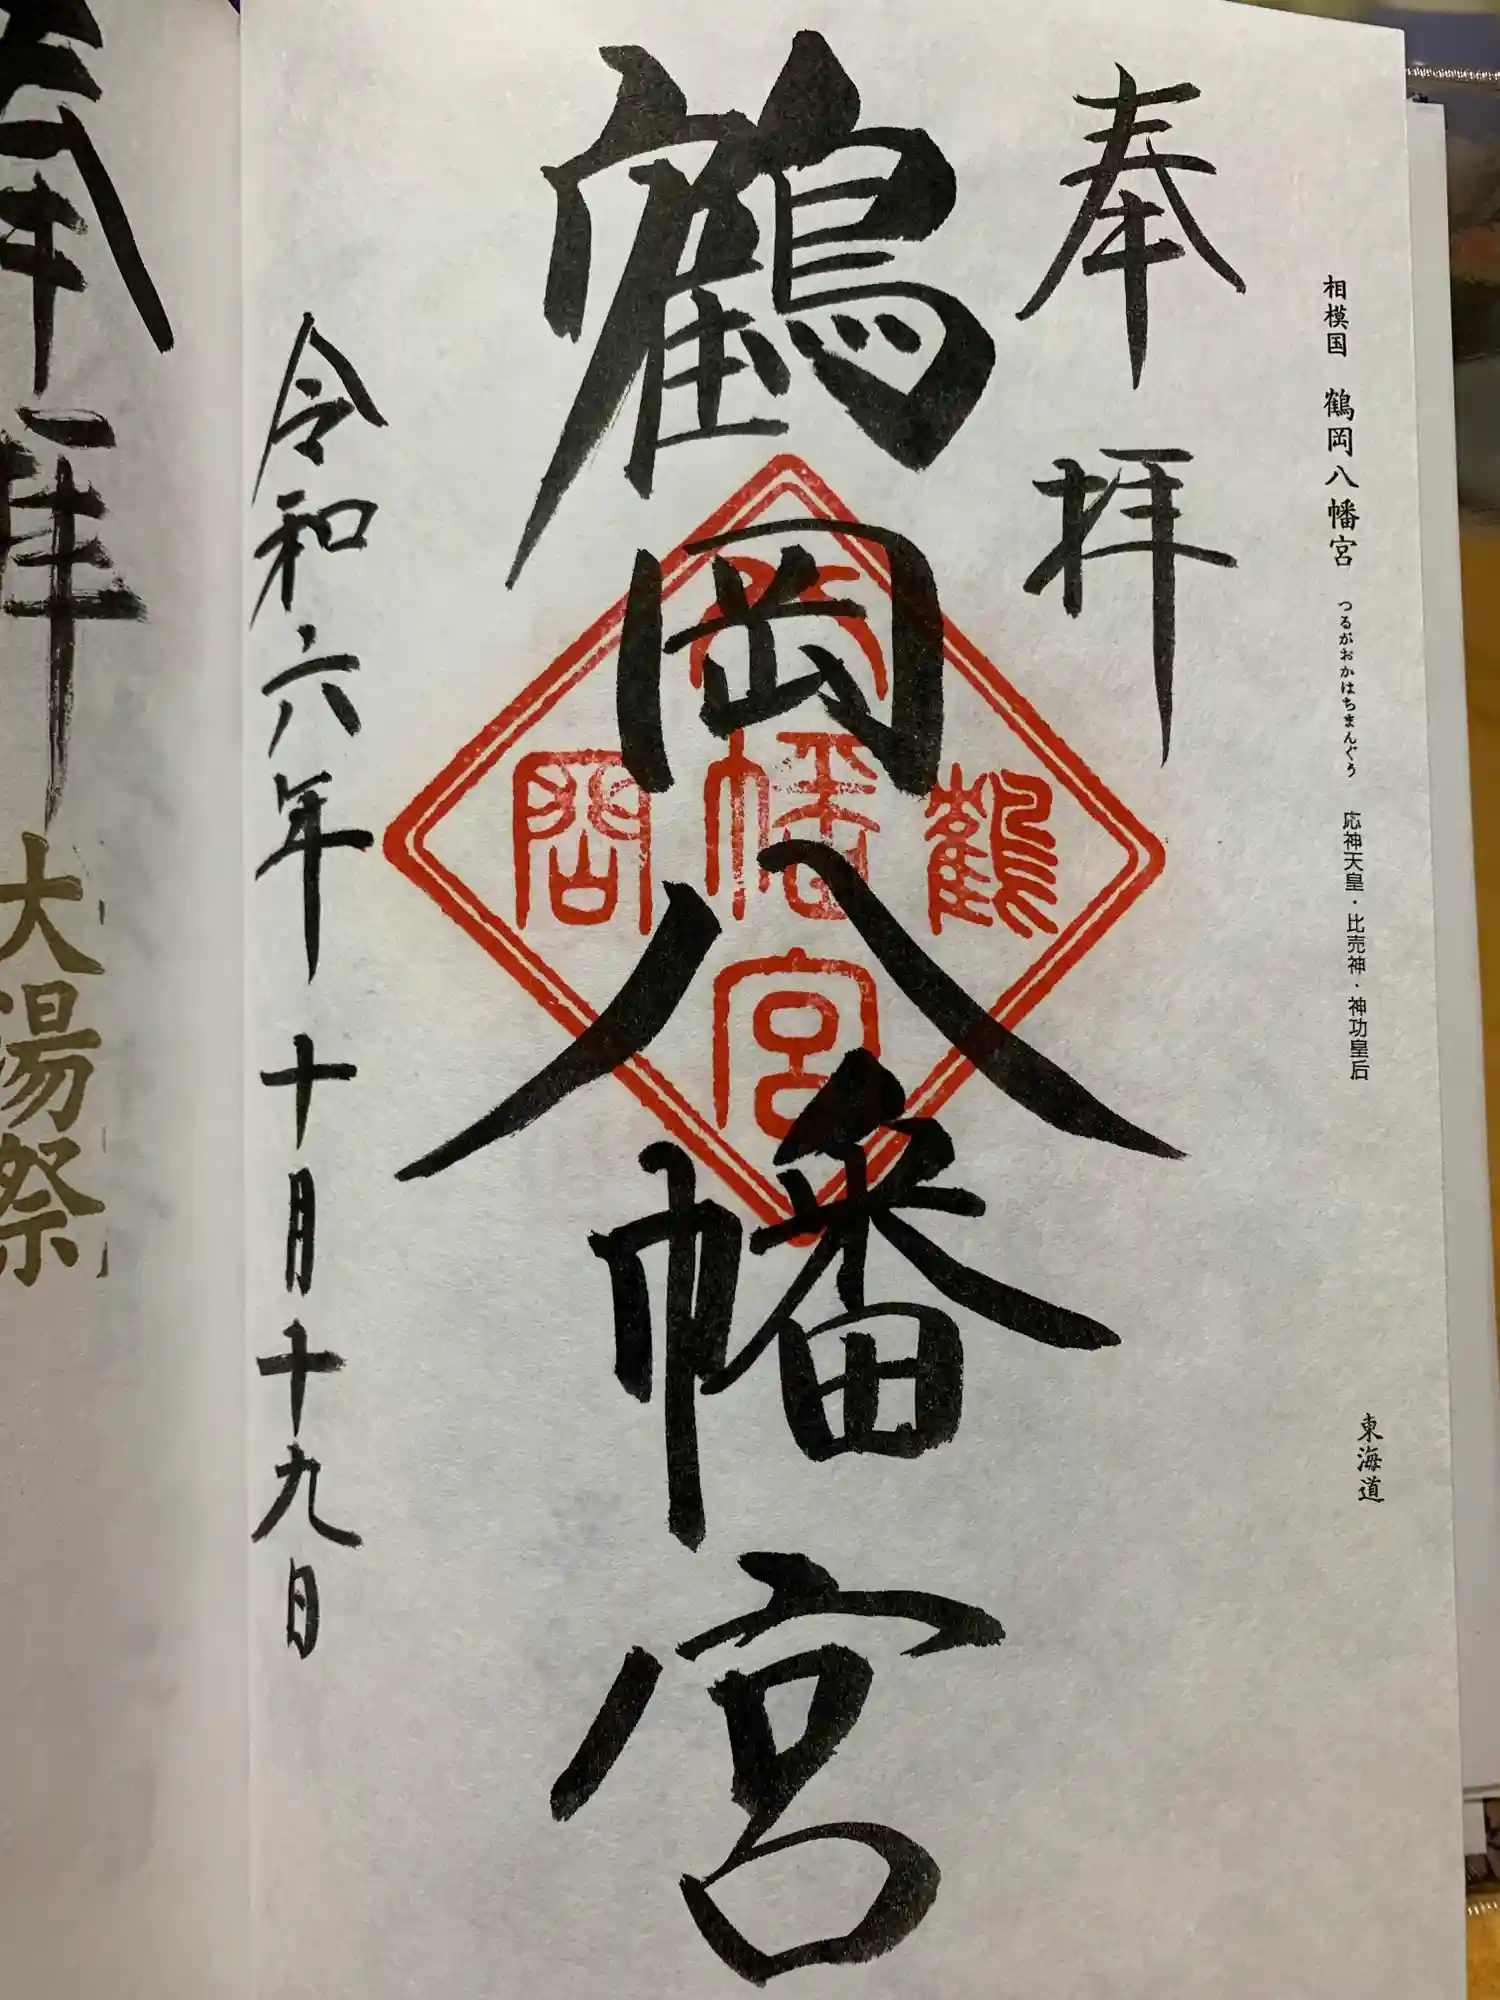 相模国 鶴岡八幡宮 つるがおかはちまんぐう 応神天皇・比売神・神功皇后 東海道
奉拝
鶴岡八幡宮
鶴岡八幡宮
令和六年十月十九日
奉拝
大湯祭